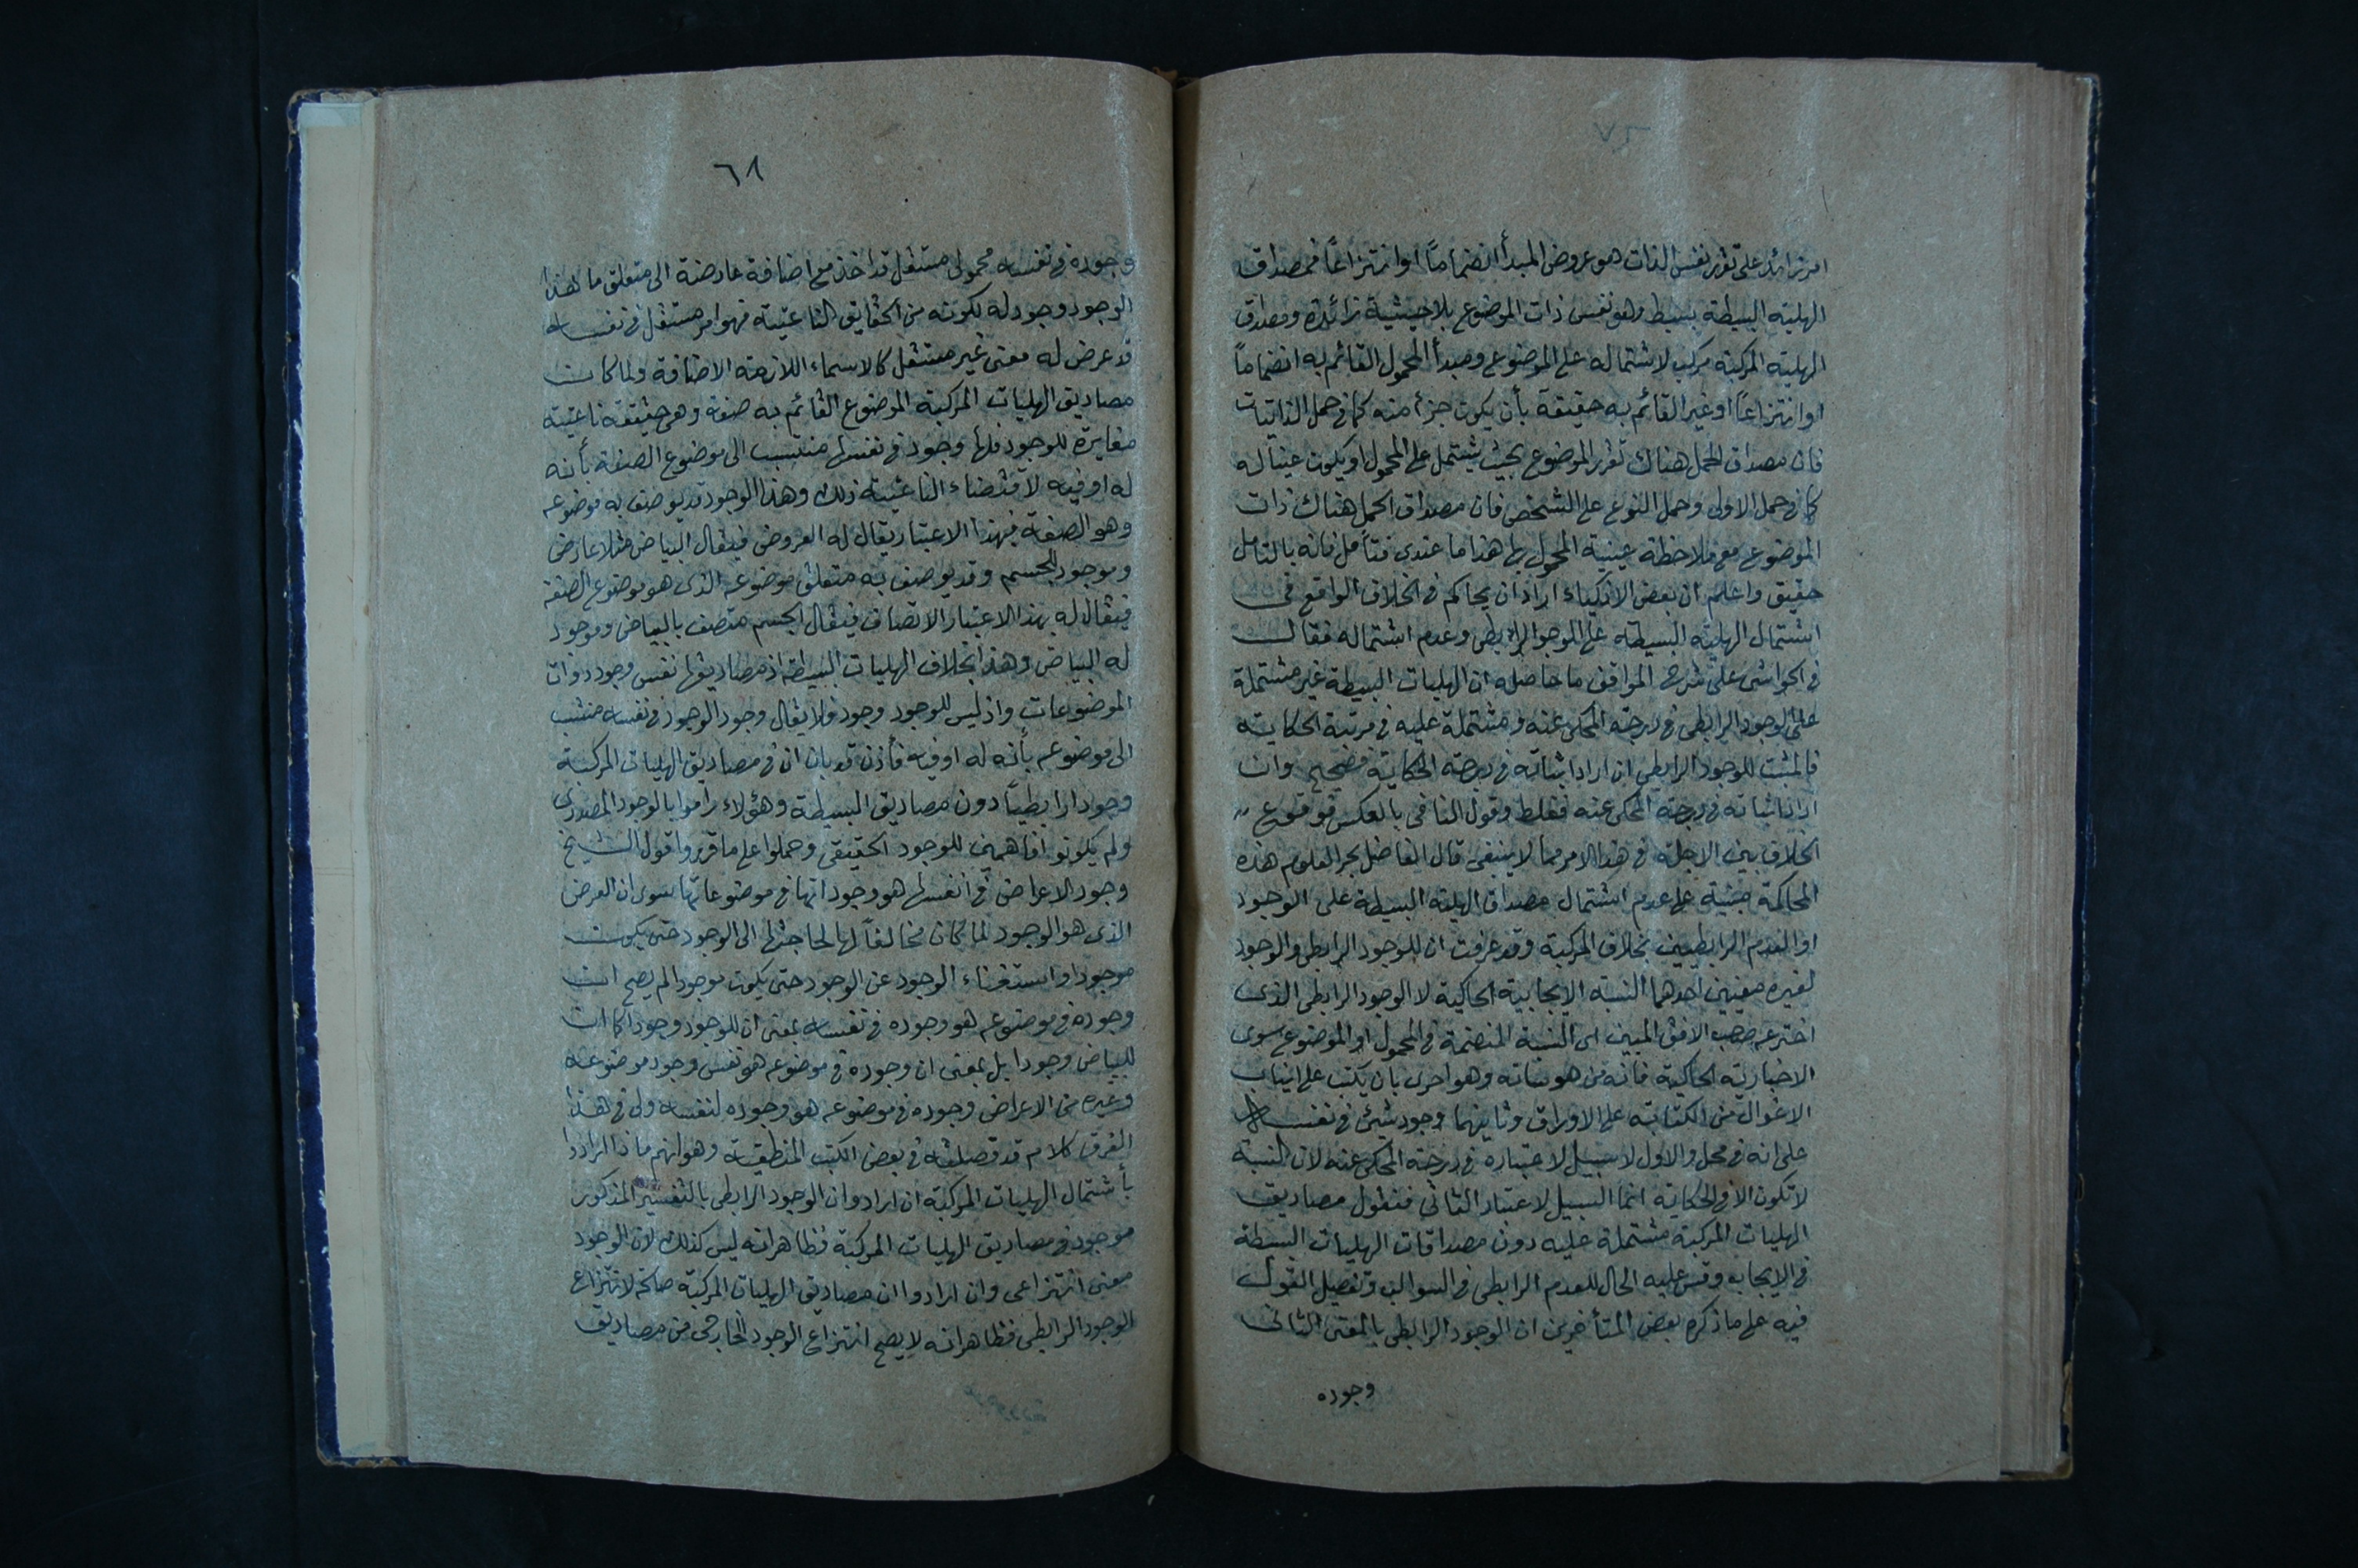 امر زائد على تقرر نفس الذات هو عروض المبدأ انضماماً او انتزاعاً فمصداق
الهلية البسيطة بسيط وهو نفس ذات الموضوع بلا حيثية زائدة ومصداق
الهلية المركبة مركب لاشتماله على الموضوع ومبدأ المحمول القائم به انضماماً
او انتزاعاً او غير القائم به حقيقة بأن يكون جزأ منه كما في حمل الذاتيات
فان مصداق الحمل هناك تقرر الموضوع بحيث يشتمل على المحمول او يكون عيناً له
كما في حمل الاولى وحمل النوع على الشخص فان مصداق الحمل هناك ذات
الموضوع مع ملاحظة عينية المحمول لها هذا ما عندى فتأمل فانه بالتامل
حقيق واعلم ان بعض الاذكياء اراد ان يحاكم في الخلاف الواقع في
اشتمال الهلية البسيطة على الوجود الرابطى وعدم اشتماله فقال
في الحواشى على شرح المواقف ما حاصله ان الهليات البسيطة غير مشتملة
على الوجود الرابطى في درجة المحكى عنه ومشتملة عليه في مرتبة الحكاية
فالمثبت للوجود الرابطى ان اراد اثباته في درجة الحكاية فصحيح وان
اراد اثباته في درجة المحكى عنه فغلط وقول النافى بالعكس فوقوع
الخلاف بين الاجلة في هذا الامر مما لا ينبغى قال الفاضل بحر العلوم هذه
المحاكمة مبنية على عدم اشتمال مصداق الهلية البسيطة على الوجود
او العدم الرابطيين بخلاف المركبة وقد عرفت ان للوجود الرابطى والوجود
لغيره معنيين احدهما النسبة الايجابية الحاكية لا الوجود الرابطى الذى
اخترعه صاحب الافق المبين اى النسبة المنضمة في المحمول او الموضوع سوى
الاخبارية الحاكية فانه من هوساته وهو احرى بان يكتب على انياب
الاغوال من الكتابة على الاوراق وثانيهما وجود شيئ في نفسه
على انه في محل والاول لا سبيل لاعتباره في درجة المحكى عنه لان النسبة
لا تكون الا في الحكاية انما السبيل لاعتبار الثانى فنقول مصاديق
الهليات المركبة مشتملة عليه دون مصداقات الهليات البسيطة
في الايجاب وقس عليه الحال للعدم الرابطى في السوالب وتفصيل القول
فيه على ما ذكره بعض المتأخرين ان الوجود الرابطى بالمعنى الثانى
وجوده
٦٨
وجوده في نفسه محمولى مستقل قد اخذ مع اضافة عارضة الى متعلق ما فهذا
الوجود وجود له لكونه من الحقايق الناعتية فهو امر مستقل في نفسه
قد عرض له معنى غير مستقل كالاسماء اللازمة الاضافة ولما كان
مصاديق الهليات المركبة الموضوع القائم به صفة وهى حقيقة ناعتية
مغايرة للوجود فلها وجود في نفسها منتسب الى موضوع الصفة بأنه
له او فيه لاقتضاء الناعتية ذلك وهذا الوجود قد يوصف به موضوعه
وهو الصفة فبهذا الاعتبار يقال له العروض فيقال البياض مثلا عارض
وموجود للجسم وقد يوصف به متعلق موضوعه الذى هو موضوع الصفة
فيقال له بهذا الاعتبار الاتصاف فيقال الجسم متصف بالبياض وموجود
له البياض وهذا بخلاف الهليات البسيطة اذ مصاديقها نفس وجود ذوات
الموضوعات واذ ليس للوجود وجود فلا يقال وجود الوجود في نفسه منتسب
الى موضوعه بأنه له او فيه فأذن قد بان ان في مصاديق الهليات المركبة
وجودا رابطياً دون مصاديق البسيطة وهؤلاء راموا بالوجود المصدرى
ولم يكونوا فاهمين للوجود الحقيقى وحملوا على ما قرروا قول الشيخ
وجود الاعراض في انفسها هو وجوداتها في موضوعاتها سوى ان العرض
الذى هو الوجود لما كان مخالفاً لها لحاجتها الى الوجود حتى يكون
موجودا واستغناء الوجود عن الوجود حتى يكون موجودا لم يصح ان
وجوده في موضوعه هو وجوده في نفسه بمعنى ان للوجود وجودا كما ان
للبياض وجودا بل بمعنى ان وجوده في موضوعه هو نفس وجود موضوعه
وغيره من الاعراض وجوده في موضوعه هو وجوده لنفسه ولى في هذا
الفرق كلام قد فصلته في بعض الكتب المنطقية وهو انهم ماذا ارادوا
بأشتمال الهليات المركبة ان ارادوا ان الوجود الرابطى بالتفسير المذكور
موجود في مصاديق الهليات المركبة فظاهر انه ليس كذلك لان الوجود
معنى انتزاعى وان ارادوا ان مصاديق الهليات المركبة صالحة لانتزاع
الوجود الرابطى فظاهر انه لا يصح انتزاع الوجود الخارجى من مصاديق